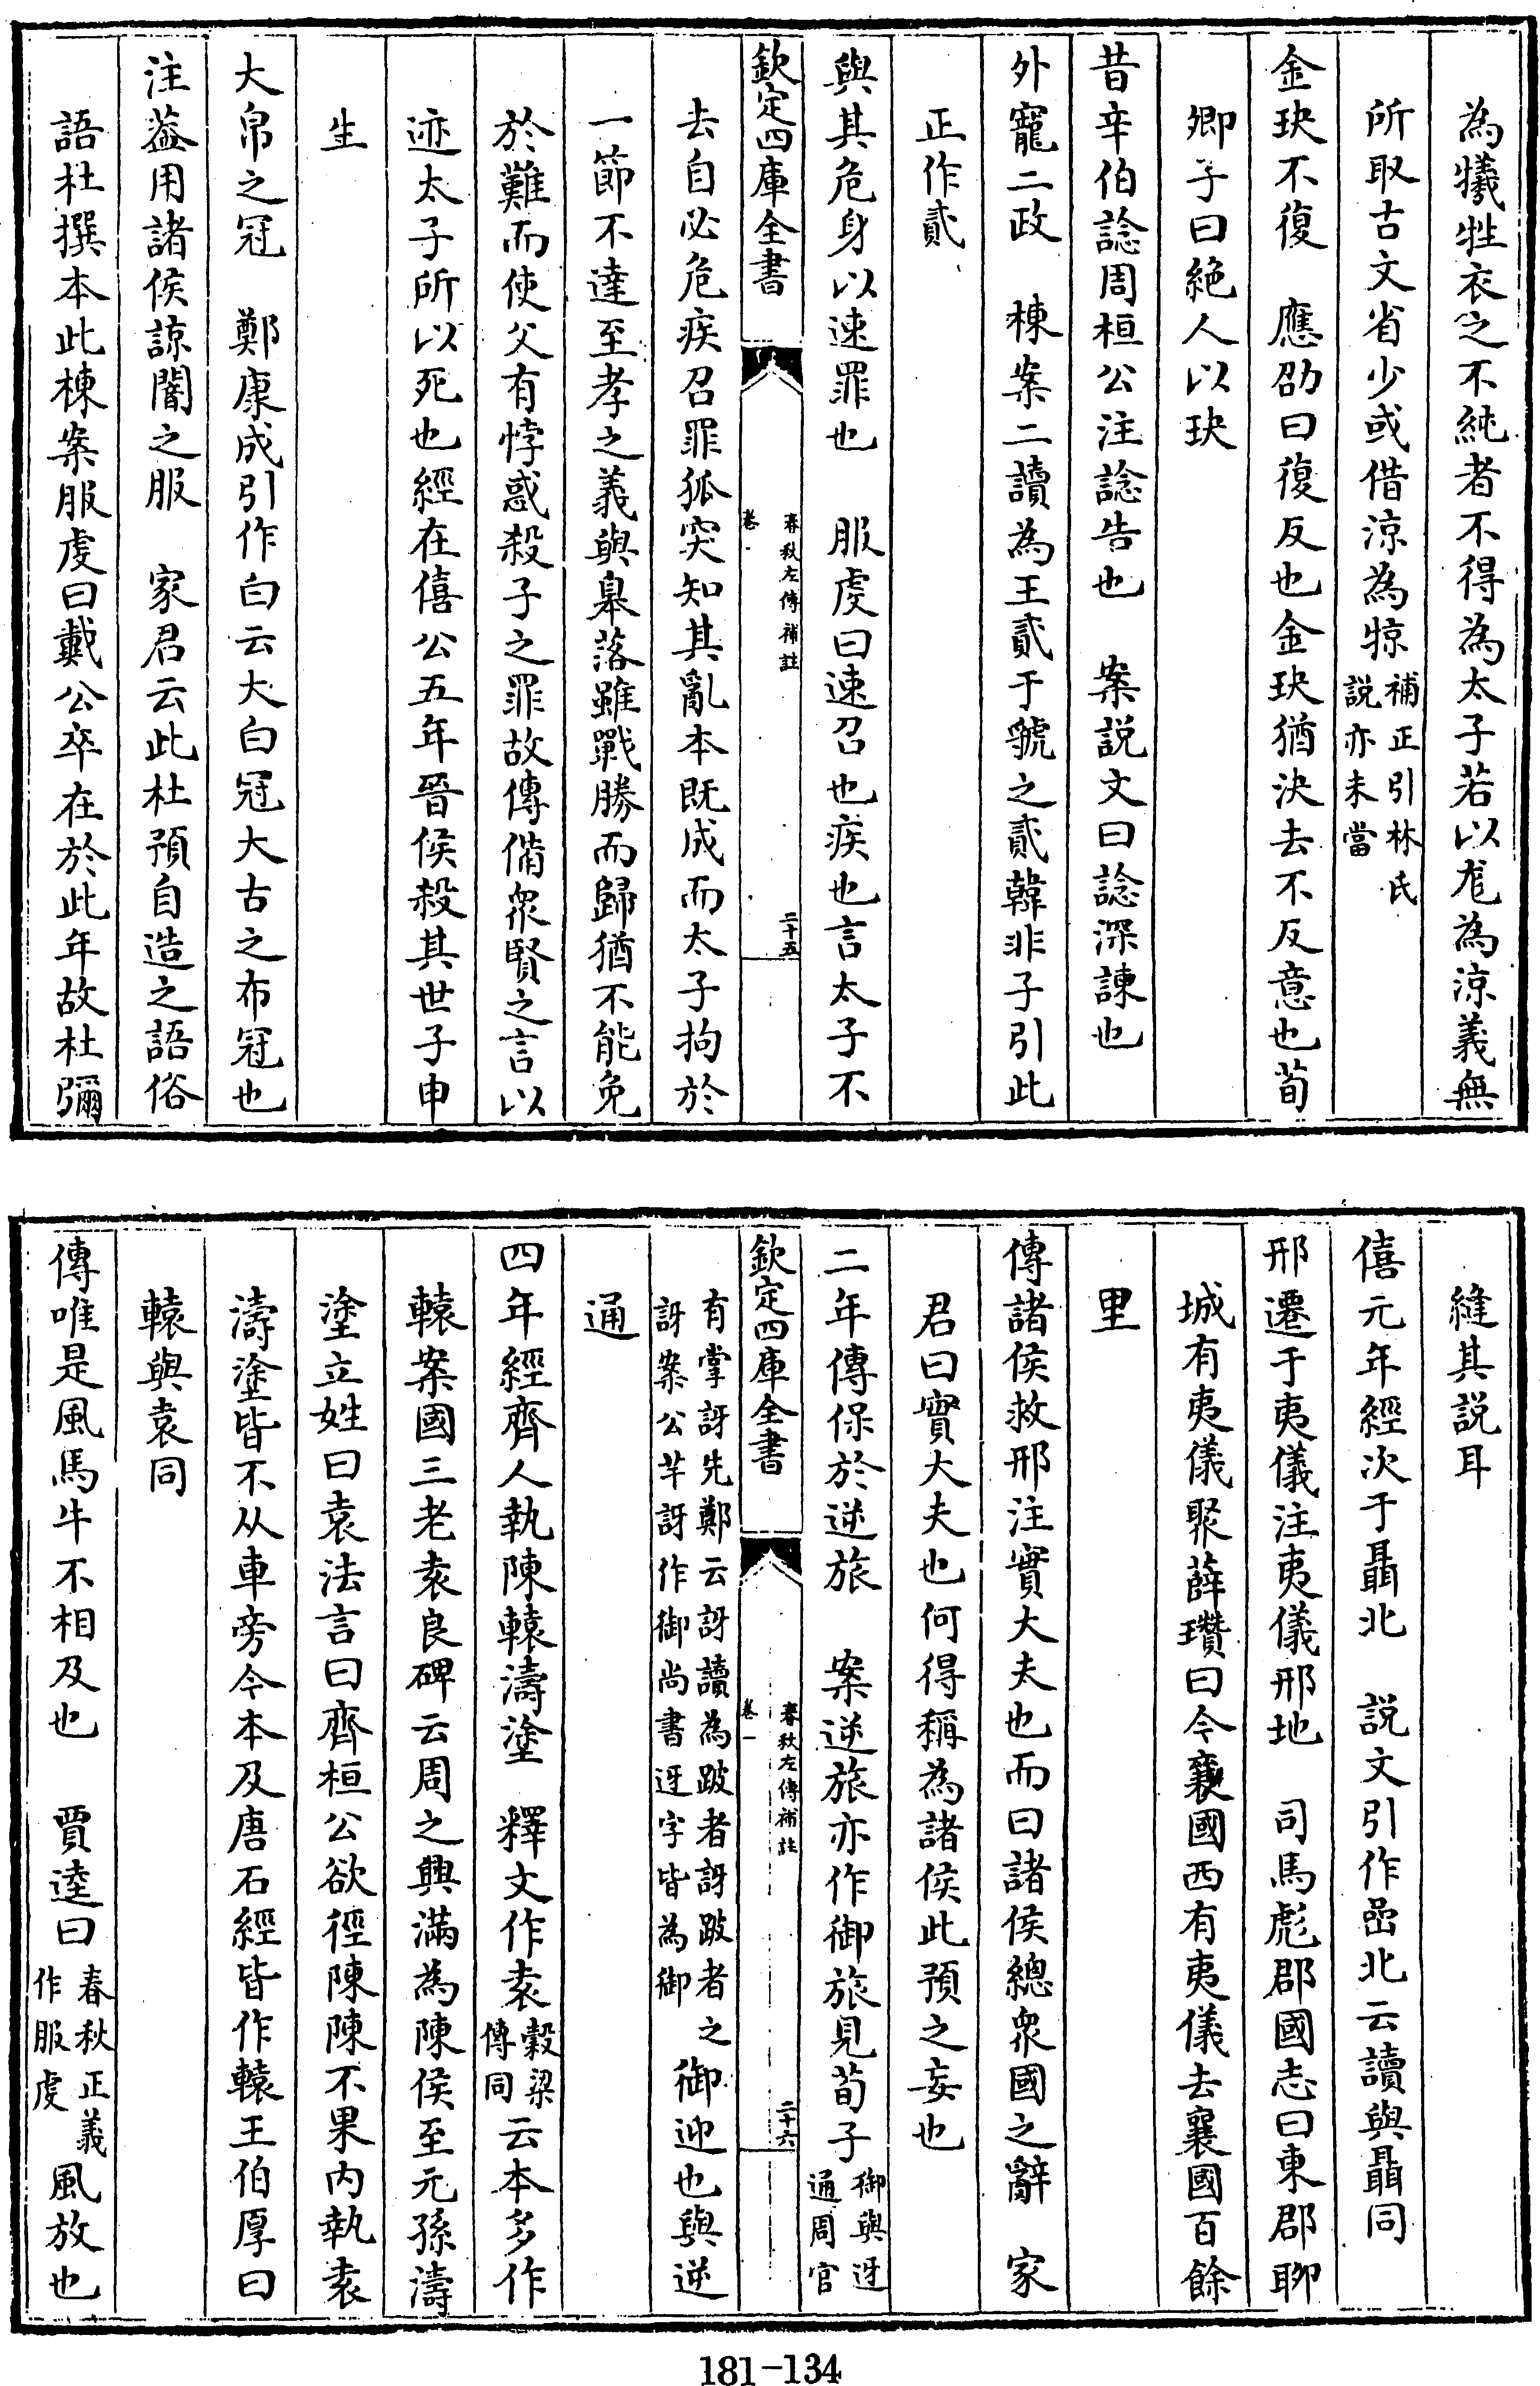 為犧牲衣之不純者不得為太子若以尨為涼義無
所取古文省少或借涼為㹁補正引林氏說亦未當
金玦不復　應劭曰復反也金玦猶決去不反意也荀
卿子曰絶人以玦
昔辛伯諗周桓公注諗告也　案說文曰諗深諫也
外寵二政　棟案二讀為王貳于虢之貳韓非子引此
正作貳
與其危身以速罪也　服虔曰速召也疾也言太子不
欽定四庫全書
春秋左傳補註
卷一
二十五
去自必危疾召罪狐突知其亂本既成而太子拘於
一節不達至孝之義與臯落雖戰勝而歸猶不能免
於難而使父有悖惑殺子之罪故傳備衆賢之言以
迹太子所以死也經在僖公五年晉侯殺其世子申
生
大帛之冠　鄭康成引作白云大白冠大古之布冠也
注葢用諸侯諒闇之服　家君云此杜預自造之語俗
語杜撰本此棟案服虔曰戴公卒在於此年故杜彌
縫其說耳
僖元年經次于聶北　說文引作嵒北云讀與聶同
邢遷于夷儀注夷儀邢地　司馬彪郡國志曰東郡聊
城有夷儀聚薛瓚曰今襄國西有夷儀去襄國百餘
里
傳諸侯救邢注實大夫也而曰諸侯總衆國之辭　家
君曰實大夫也何得稱為諸侯此預之妄也
二年傳保於逆旅　案逆旅亦作御旅見荀子御與迓通周官
欽定四庫全書
春秋左傳補註
卷一
二十六
有掌訝先鄭云訝讀為跛者訝跛者之訝案公羊訝作御尚書迓字皆為御御迎也與逆
通
四年經齊人執陳轅濤塗　釋文作袁穀梁傳同云本多作
轅案國三老袁良碑云周之興滿為陳侯至元孫濤
塗立姓曰袁法言曰齊桓公欲徑陳陳不果內執袁
濤塗皆不从車旁今本及唐石經皆作轅王伯厚曰
轅與袁同
傳唯是風馬牛不相及也　賈逵曰春秋正義作服虔風放也
181-134